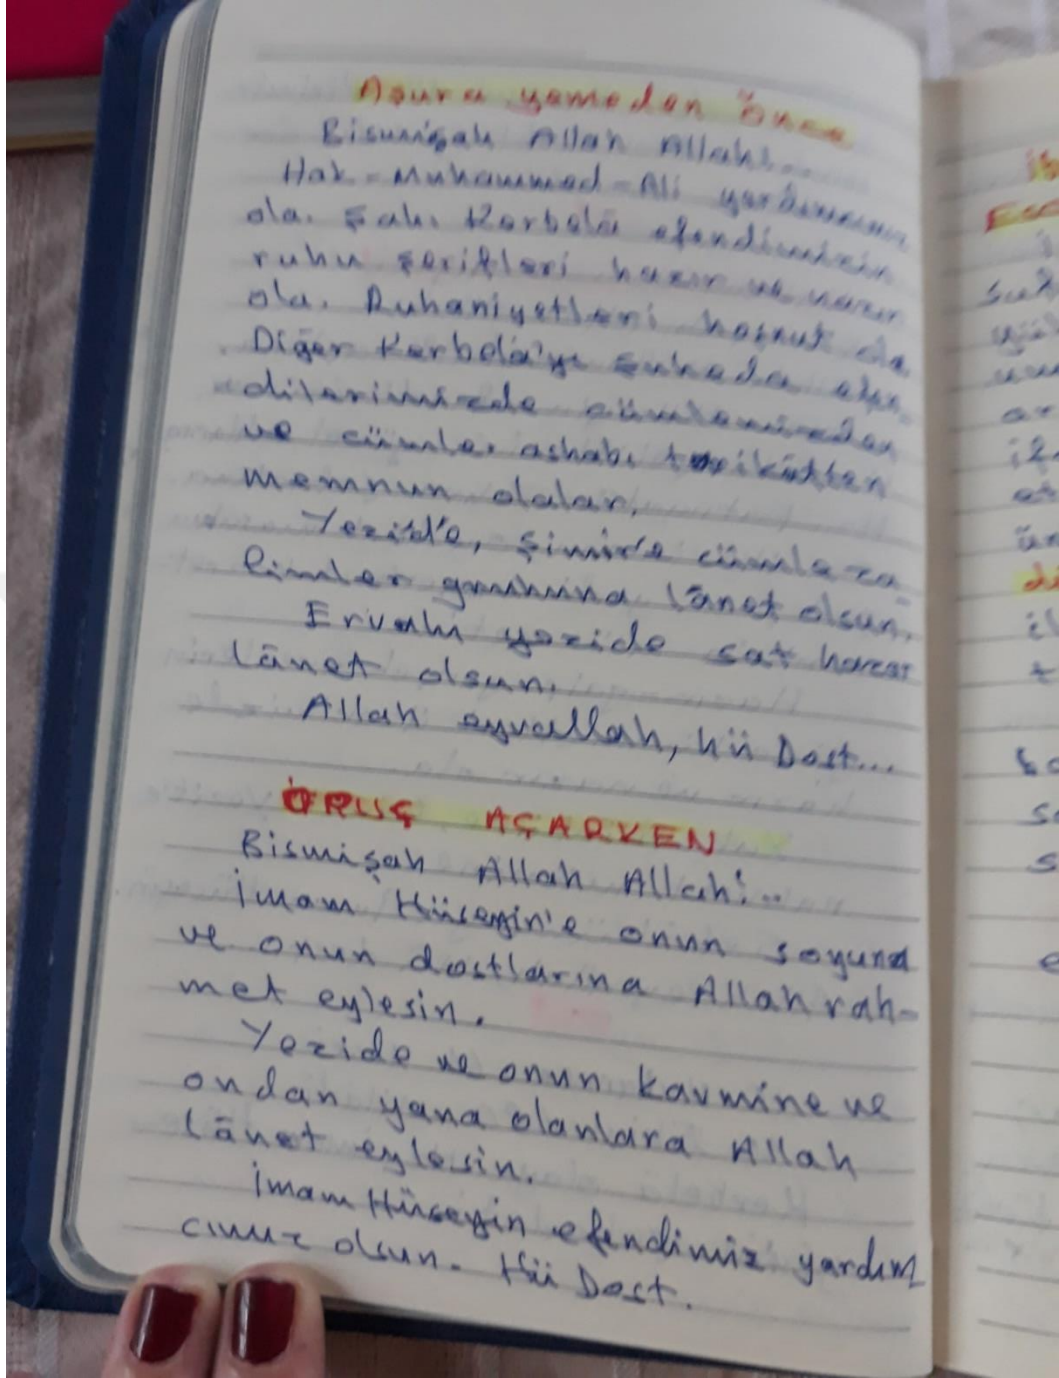 Aşura yemeden önce
Bismişah Allah Allah!...
Hak-Muhammed-Ali yardımcımız
ola. Şahı Kerbelâ efendimizin
ruhu şerifleri hazır ve nazır
ola. Ruhaniyetleri hoşnut ola
Diğer Kerbelâ'yı şuheda efen-
dilerimizde cümlemizden
ve cümle ashabı tarikatten
memnun olalar.
Yezid'e, Şimir'e cümle za-
limler güruhuna lânet olsun.
Ervahı yezide sat hezar
lânet olsun.
Allah eyvallah, hü Dost...
ORUÇ AÇARKEN
Bismişah Allah Allah!..
İmam Hüseyin'e onun soyuna
ve onun dostlarına Allah rah-
met eylesin.
Yezide ve onun kavmine ve
ondan yana olanlara Allah
lânet eylesin.
İmam Hüseyin efendimiz yardım
cımız olsun. Hü Dost.